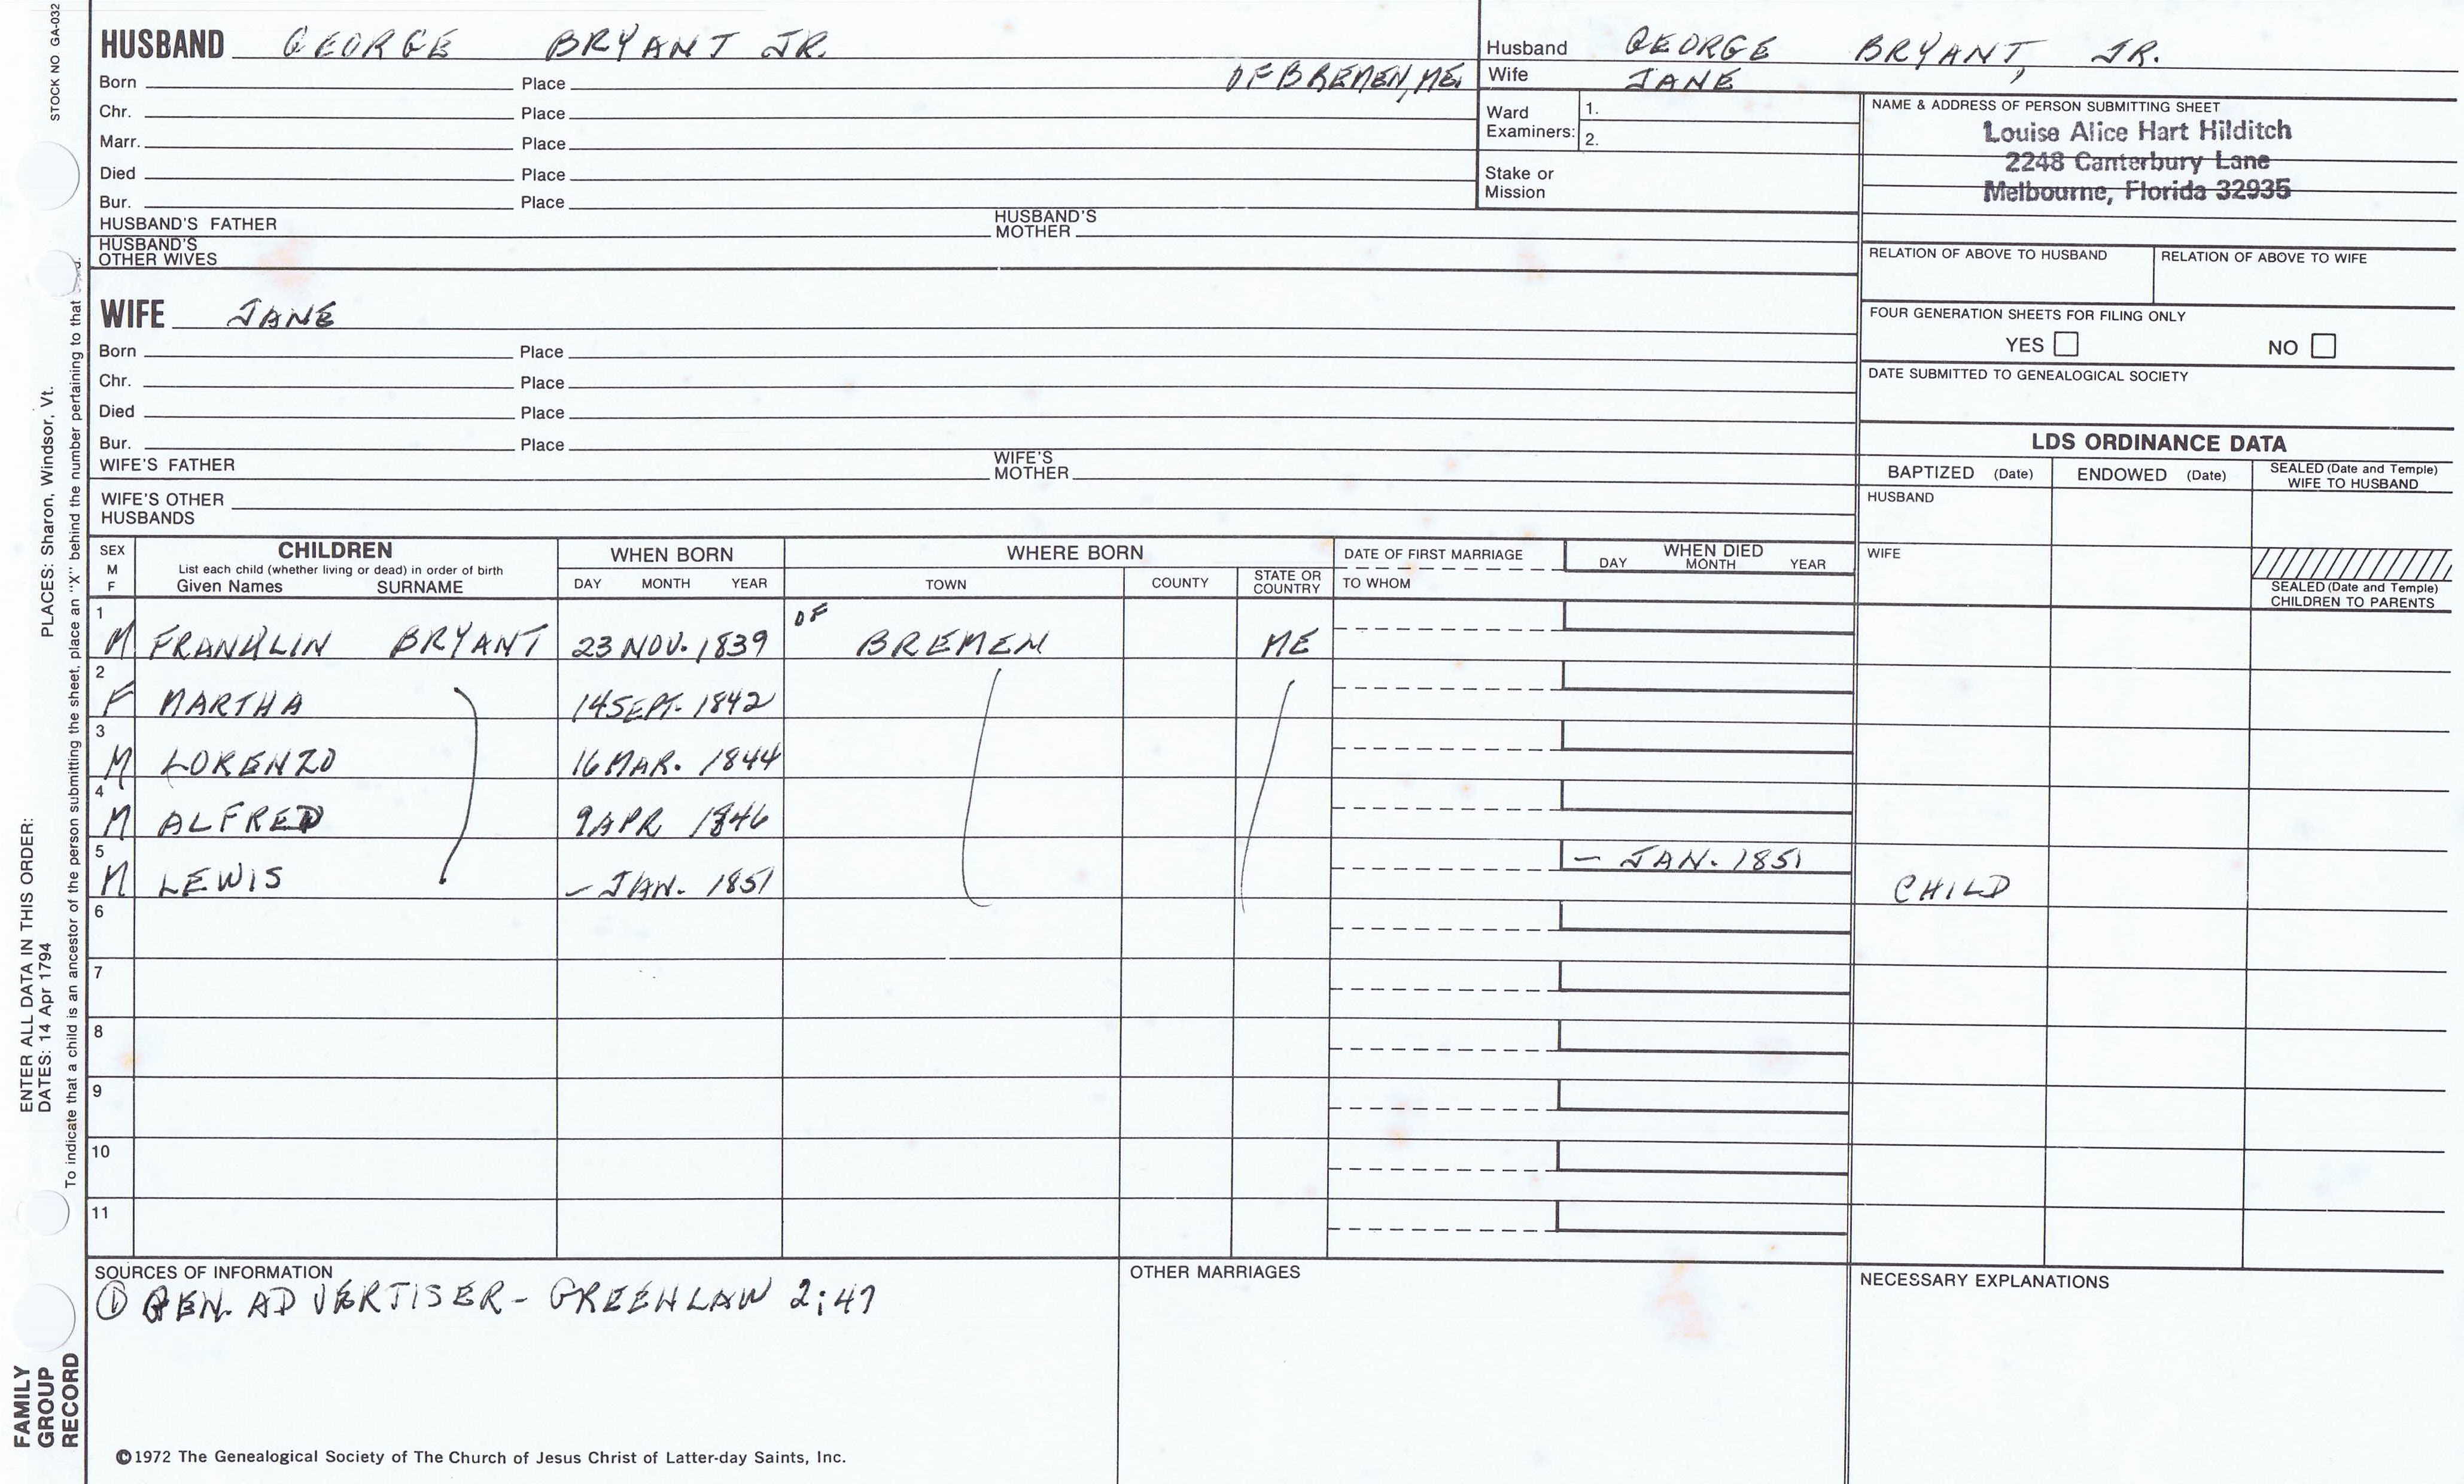 STOCK NO GA-032
HUSBAND GEORGE BRYANT JR.
OF BREMEN, ME.
Born Place
Chr. Place
Marr. Place
Died Place
Bur. Place
HUSBAND'S FATHER HUSBAND'S MOTHER
HUSBAND'S OTHER WIVES
Husband GEORGE BRYANT, JR.
Wife JANE
Ward Examiners: 1.
2.
Stake or Mission
NAME & ADDRESS OF PERSON SUBMITTING SHEET
Louise Alice Hart Hilditch
2248 Canterbury Lane
Melbourne, Florida 32935
RELATION OF ABOVE TO HUSBAND RELATION OF ABOVE TO WIFE
FOUR GENERATION SHEETS FOR FILING ONLY
YES NO
DATE SUBMITTED TO GENEALOGICAL SOCIETY
WIFE JANE
Born Place
Chr. Place
Died Place
Bur. Place
WIFE'S FATHER WIFE'S MOTHER
WIFE'S OTHER HUSBANDS
LDS ORDINANCE DATA
BAPTIZED (Date) ENDOWED (Date) SEALED (Date and Temple) WIFE TO HUSBAND
HUSBAND
WIFE
SEALED (Date and Temple) CHILDREN TO PARENTS
SEX M F
CHILDREN
List each child (whether living or dead) in order of birth
Given Names SURNAME
WHEN BORN
DAY MONTH YEAR
WHERE BORN
TOWN COUNTY STATE OR COUNTRY
DATE OF FIRST MARRIAGE
TO WHOM
WHEN DIED
DAY MONTH YEAR
1 M FRANKLIN BRYANT 23 NOV. 1839 OF BREMEN ME
2 F MARTHA 14 SEPT. 1842
3 M LORENZO 16 MAR. 1844
4 M ALFRED 9 APR 1846
5 M LEWIS – JAN. 1851 – JAN. 1851 CHILD
6
7
8
9
10
11
SOURCES OF INFORMATION
① GEN. ADVERTISER - GREENLAW 2:47
OTHER MARRIAGES
NECESSARY EXPLANATIONS
©1972 The Genealogical Society of The Church of Jesus Christ of Latter-day Saints, Inc.
ENTER ALL DATA IN THIS ORDER:
DATES: 14 Apr 1794 PLACES: Sharon, Windsor, Vt.
To indicate that a child is an ancestor of the person submitting the sheet, place an "X" behind the number pertaining to that
FAMILY
GROUP
RECORD